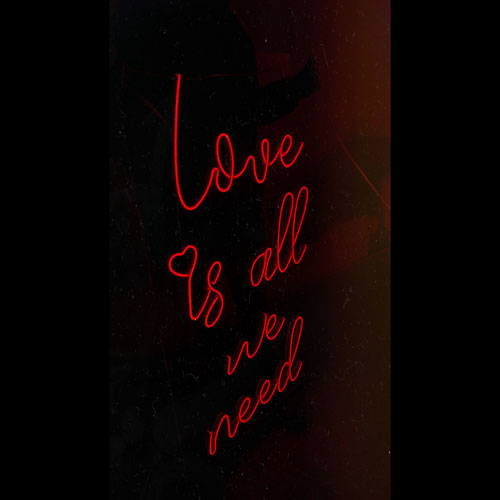 Love
is all
we
need